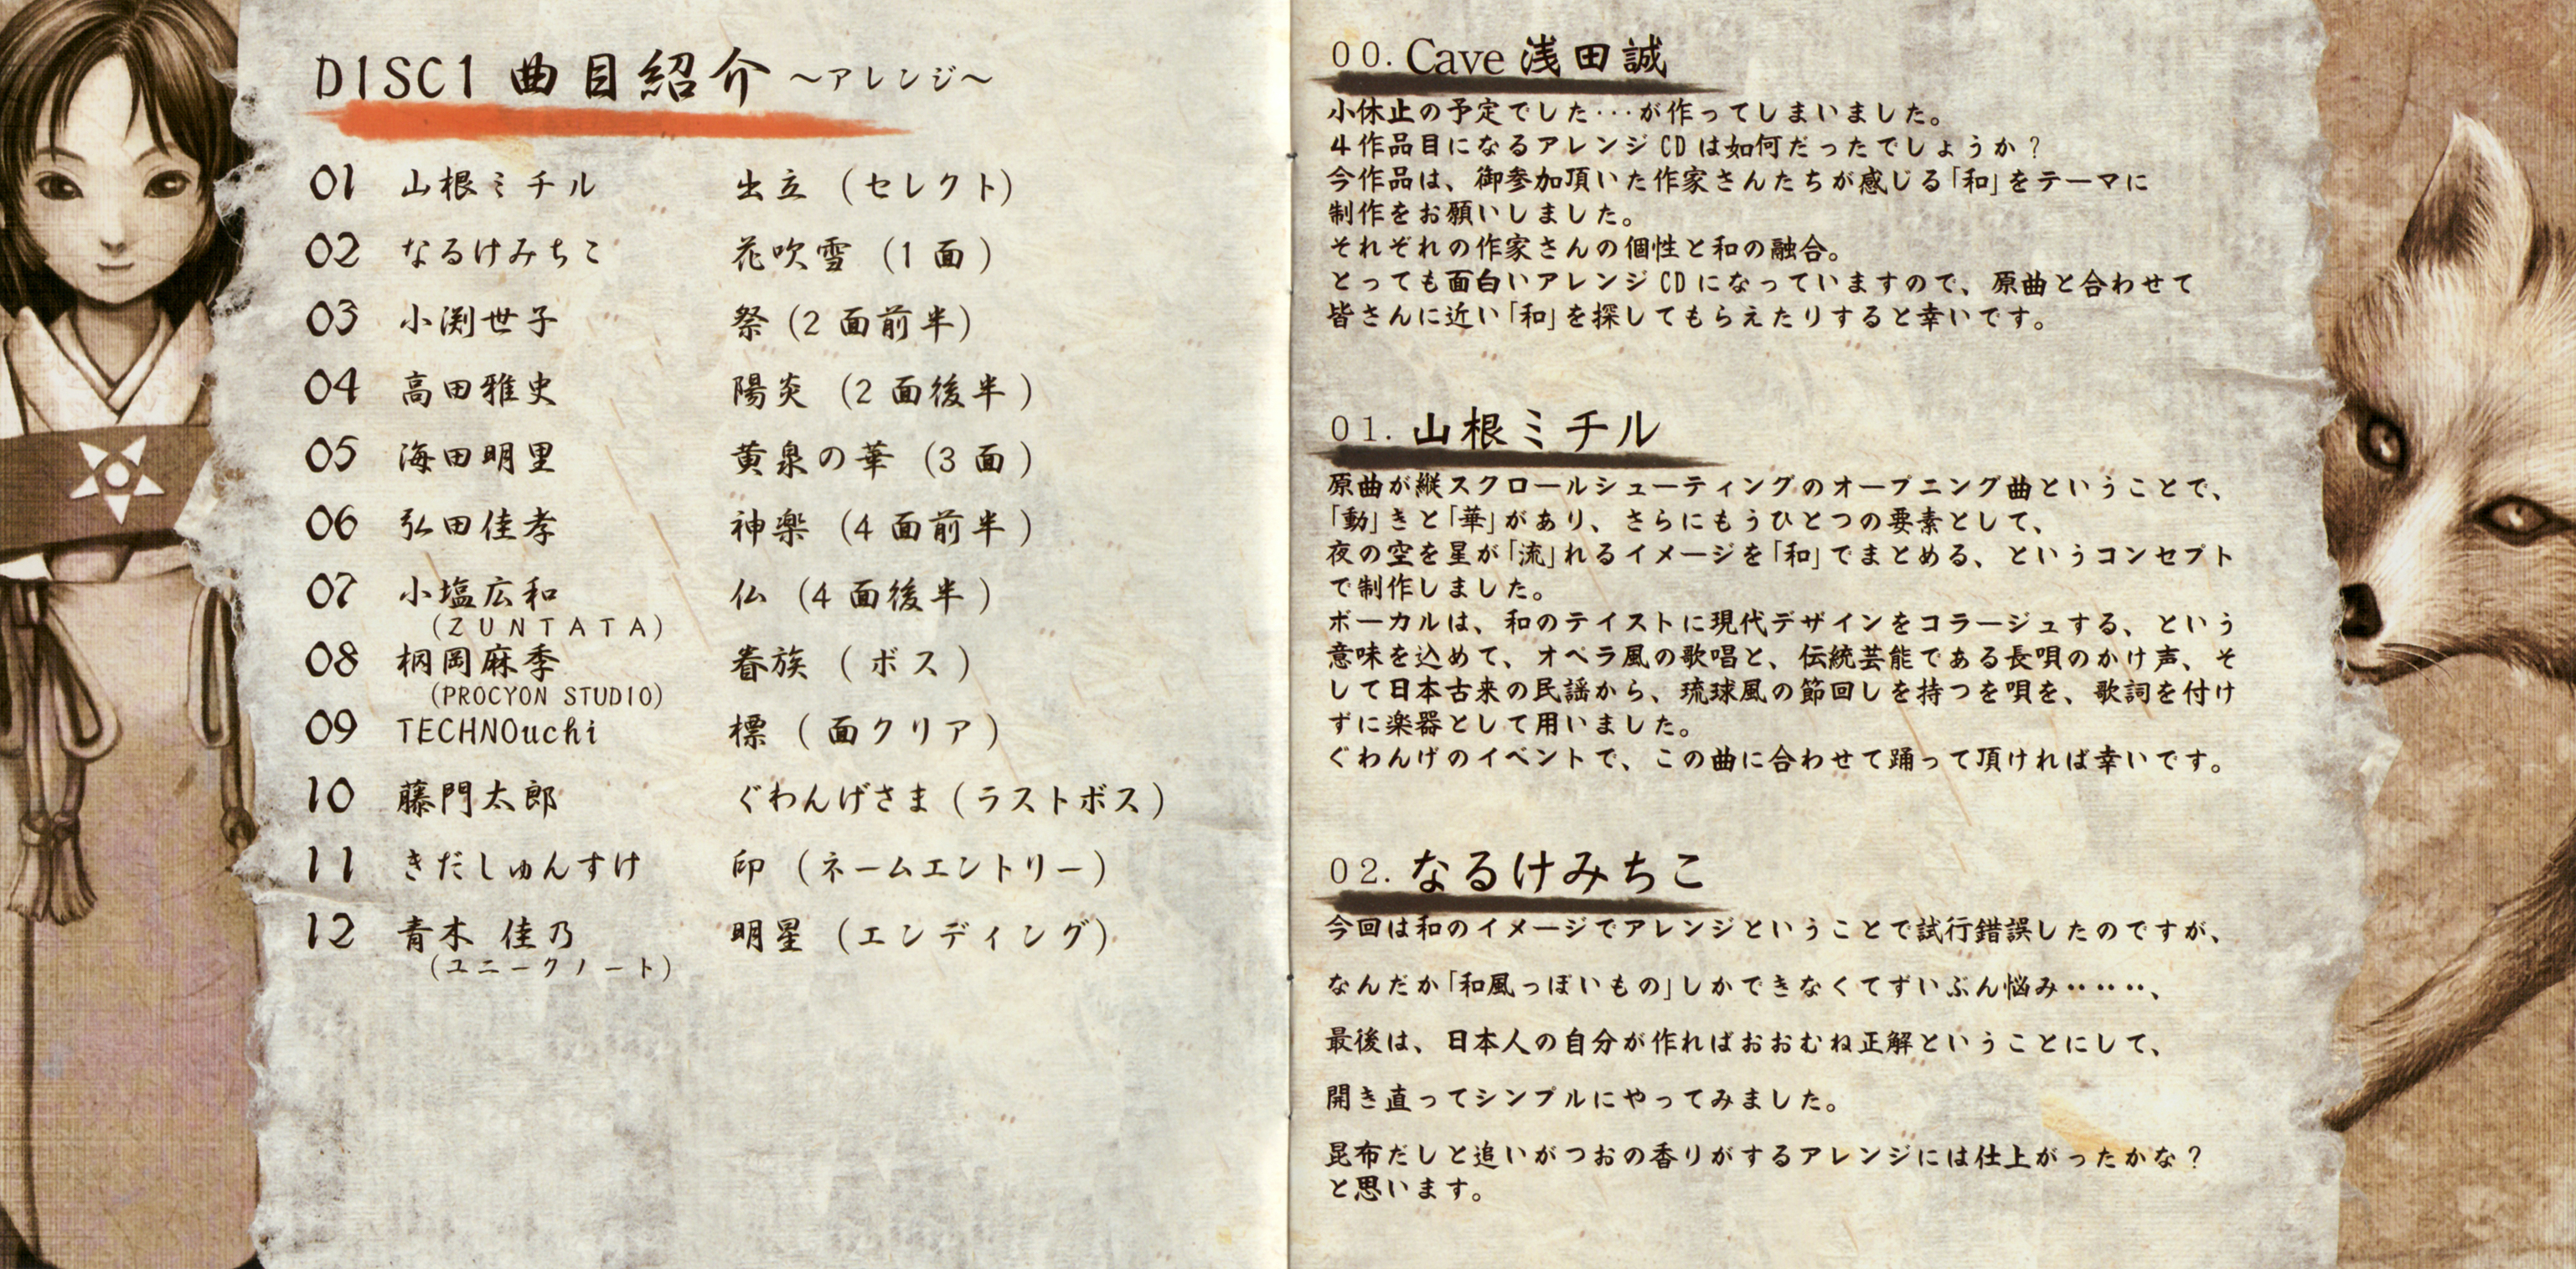 DISC1 曲目紹介 ～アレンジ～
01 山根ミチル 出立 (セレクト)
02 なるけみちこ 花吹雪 (1面)
03 小渕世子 祭 (2面前半)
04 高田雅史 陽炎 (2面後半)
05 海田明里 黄泉の華 (3面)
06 弘田佳孝 神楽 (4面前半)
07 小塩広和 仏 (4面後半)
(ZUNTATA)
08 桐岡麻季 眷族 (ボス)
(PROCYON STUDIO)
09 TECHNOuchi 標 (面クリア)
10 藤門太郎 ぐわんげさま (ラストボス)
11 きだしゅんすけ 印 (ネームエントリー)
12 青木 佳乃 明星 (エンディング)
(ユニークノート)
00. Cave 浅田誠
小休止の予定でした・・・が作ってしまいました。
4作品目になるアレンジCDは如何だったでしょうか?
今作品は、御参加頂いた作家さんたちが感じる「和」をテーマに
制作をお願いしました。
それぞれの作家さんの個性と和の融合。
とっても面白いアレンジCDになっていますので、原曲と合わせて
皆さんに近い「和」を探してもらえたりすると幸いです。
01. 山根ミチル
原曲が縦スクロールシューティングのオープニング曲ということで、
「動」きと「華」があり、さらにもうひとつの要素として、
夜の空を星が「流」れるイメージを「和」でまとめる、というコンセプト
で制作しました。
ボーカルは、和のテイストに現代デザインをコラージュする、という
意味を込めて、オペラ風の歌唱と、伝統芸能である長唄のかけ声、そ
して日本古来の民謡から、琉球風の節回しを持つを唄を、歌詞を付け
ずに楽器として用いました。
ぐわんげのイベントで、この曲に合わせて踊って頂ければ幸いです。
02. なるけみちこ
今回は和のイメージでアレンジということで試行錯誤したのですが、
なんだか「和風っぽいもの」しかできなくてずいぶん悩み‥‥‥、
最後は、日本人の自分が作ればおおむね正解ということにして、
開き直ってシンプルにやってみました。
昆布だしと追いがつおの香りがするアレンジには仕上がったかな?
と思います。